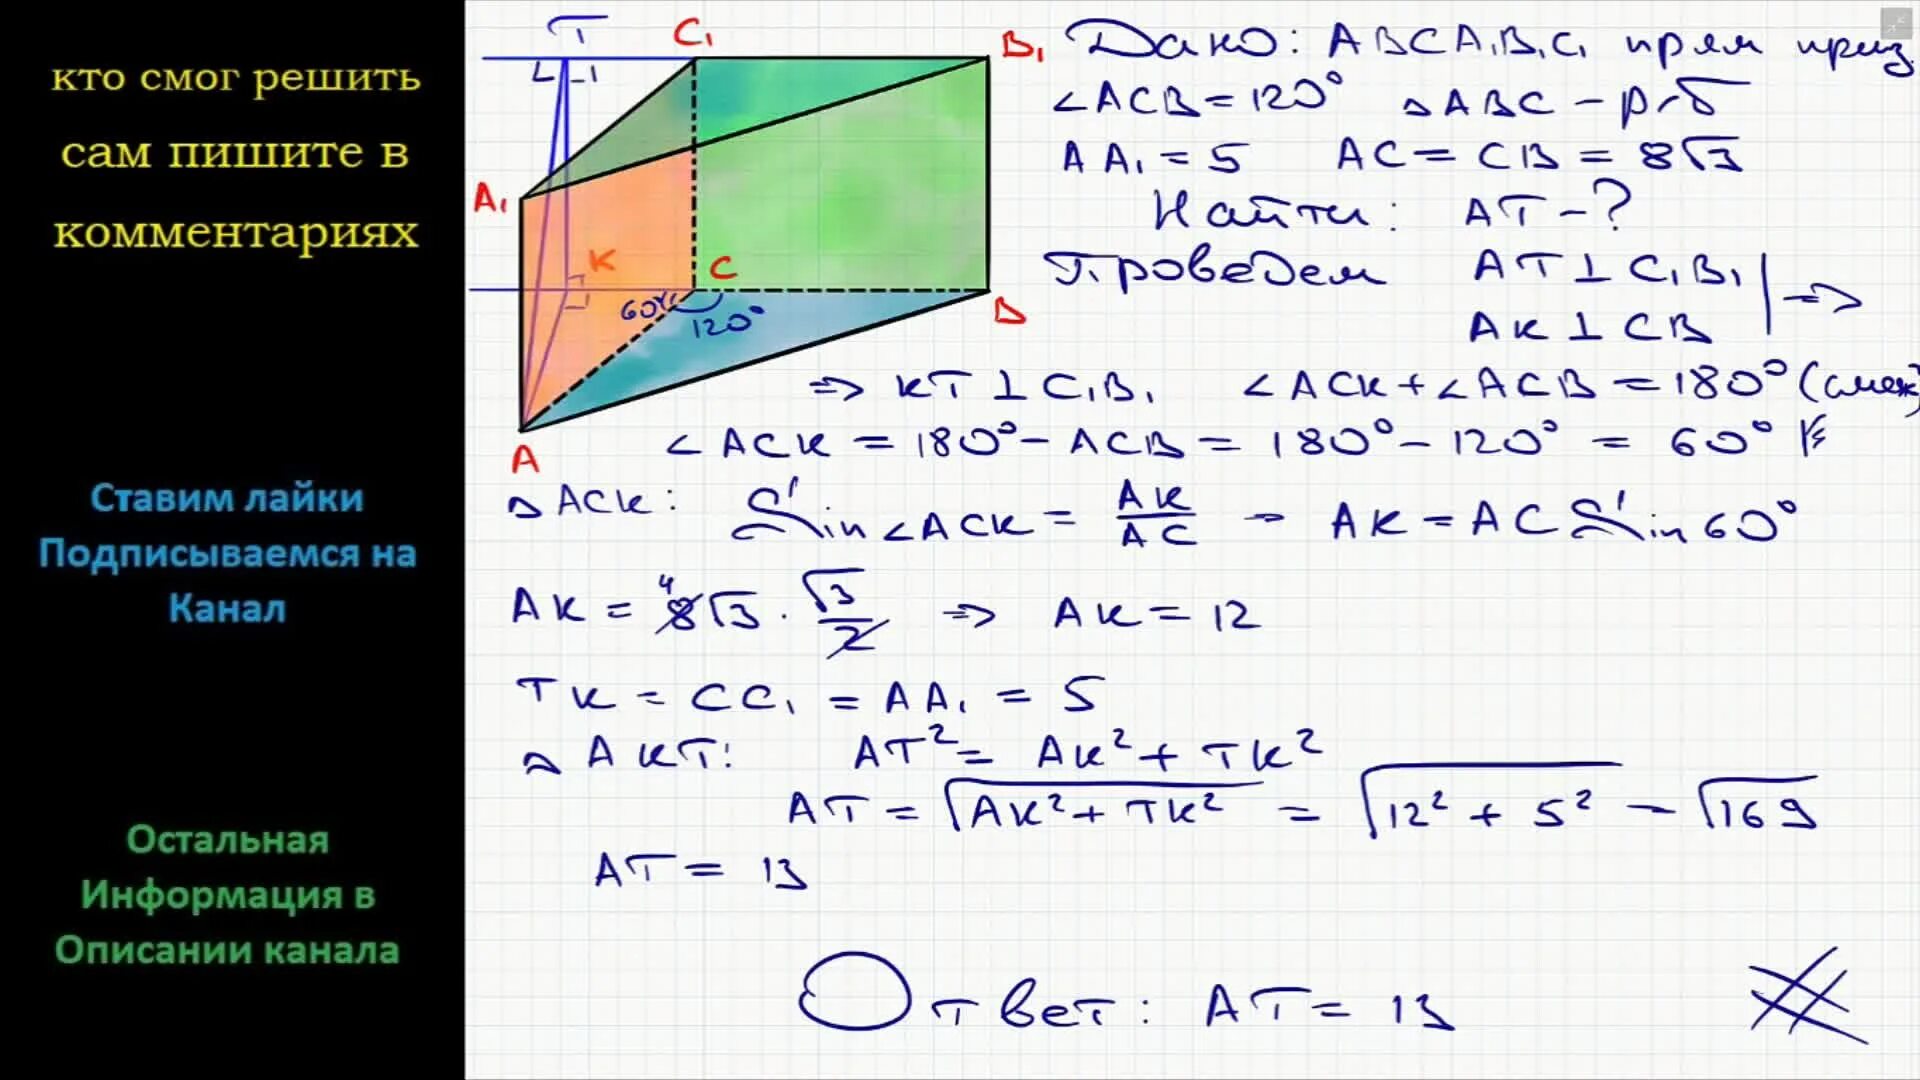 кто смог решить
сам пишите в
комментариях
Ставим лайки
Подписываемся на
Канал
Остальная
Информация в
Описании канала
T
C₁
B₁
A₁
K
C
60°
120°
B
A
Дано: ABCA₁B₁C₁ прям приз.
∠ACB = 120° △ABC - р-б
AA₁ = 5 AC = CB = 8√3
Найти: AT - ?
Проведем AT ⊥ C₁B₁
AK ⊥ CB | =>
=> KT ⊥ C₁B₁ ∠ACK + ∠ACB = 180° (смеж)
∠ACK = 180° - ACB = 180° - 120° = 60°
△ACK: Sin∠ACK = AK/AC → AK = AC Sin 60°
AK = 8√3 · √3/2 => AK = 12
4
TK = CC₁ = AA₁ = 5
△AKT: AT² = AK² + TK²
AT = √(AK² + TK²) = √(12² + 5²) = √169
AT = 13
Ответ: AT = 13